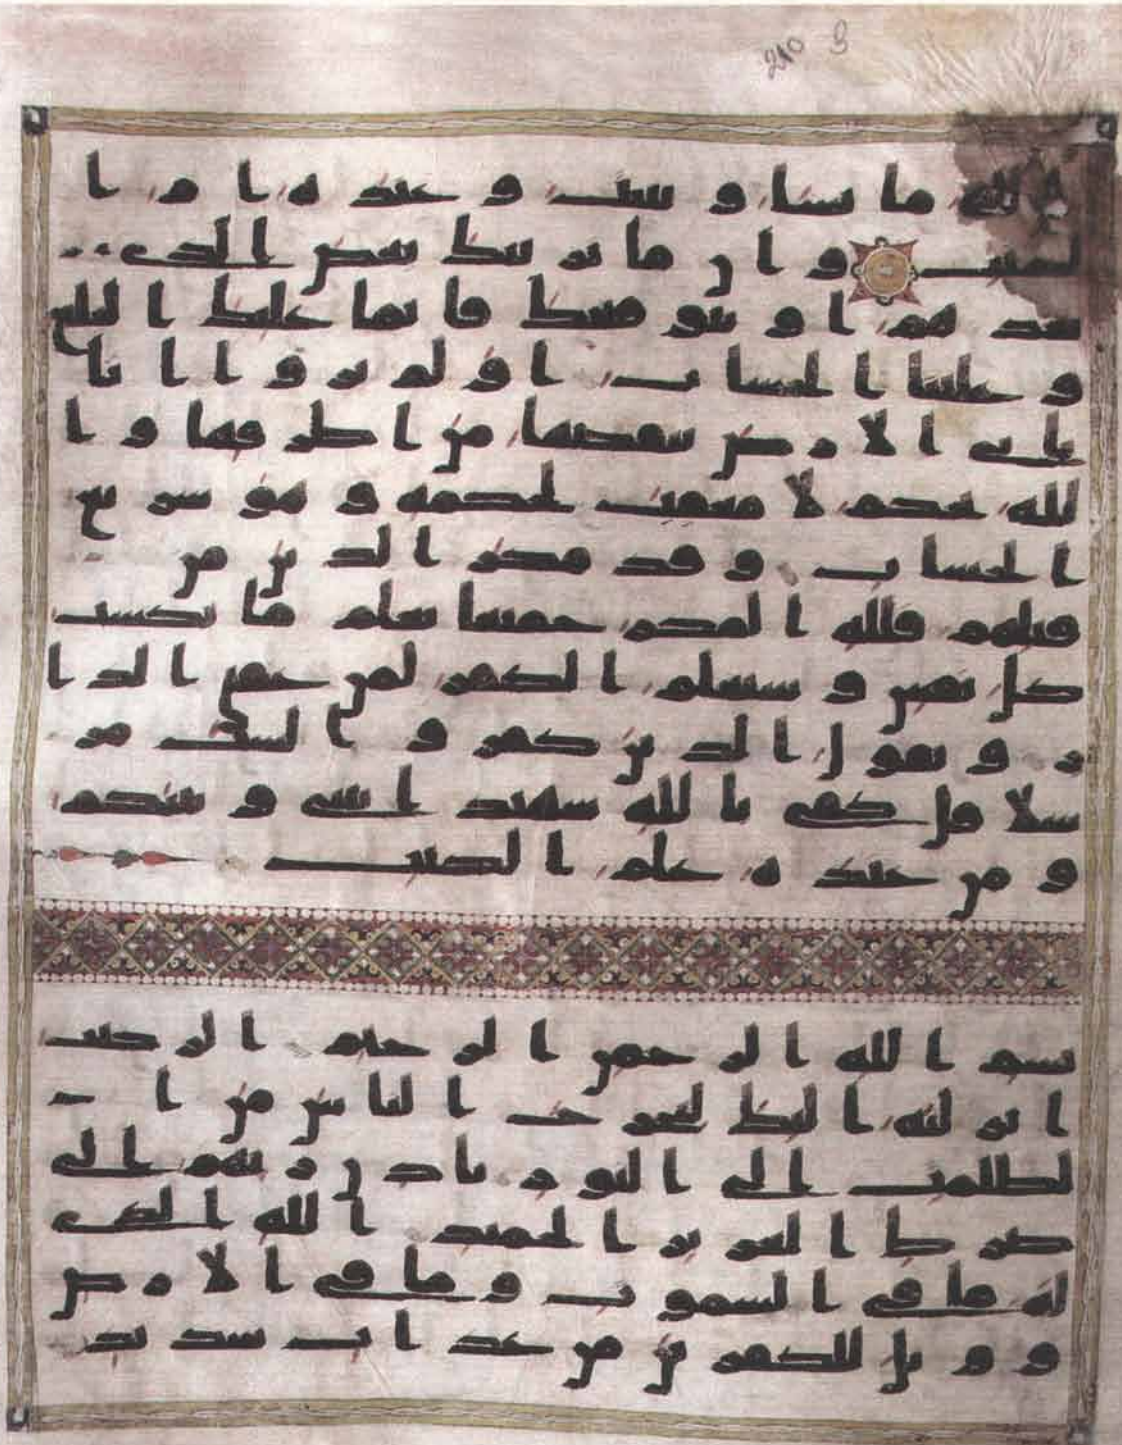 210 3
الله ما يشا و يثبت و عنده ام ا
لكتب و ان ما نرينك بعض الذى
نعدهم او نتوفينك فانما عليك البلغ
و علينا الحساب او لم يروا انا
ناتى الارض ننقصها من اطرفها و ا
لله يحكم لا معقب لحكمه و هو سريع
الحساب و قد مكر الذين من
قبلهم فلله المكر جميعا يعلم ما تكسب
كل نفس و سيعلم الكفر لمن عقبى الدا
ر و يقول الذين كفروا لست مر
سلا قل كفى بالله شهيدا بينى و بينكم
و من عنده علم الكتب
بسم الله الرحمن الرحيم الر كتب
انزلنه اليك لتخرج الناس من ا
لظلمت الى النور باذن ربهم الى
صرط العزيز الحميد الله الذى
له ما فى السموت و ما فى الارض
و ويل للكفرين من عذاب شديد